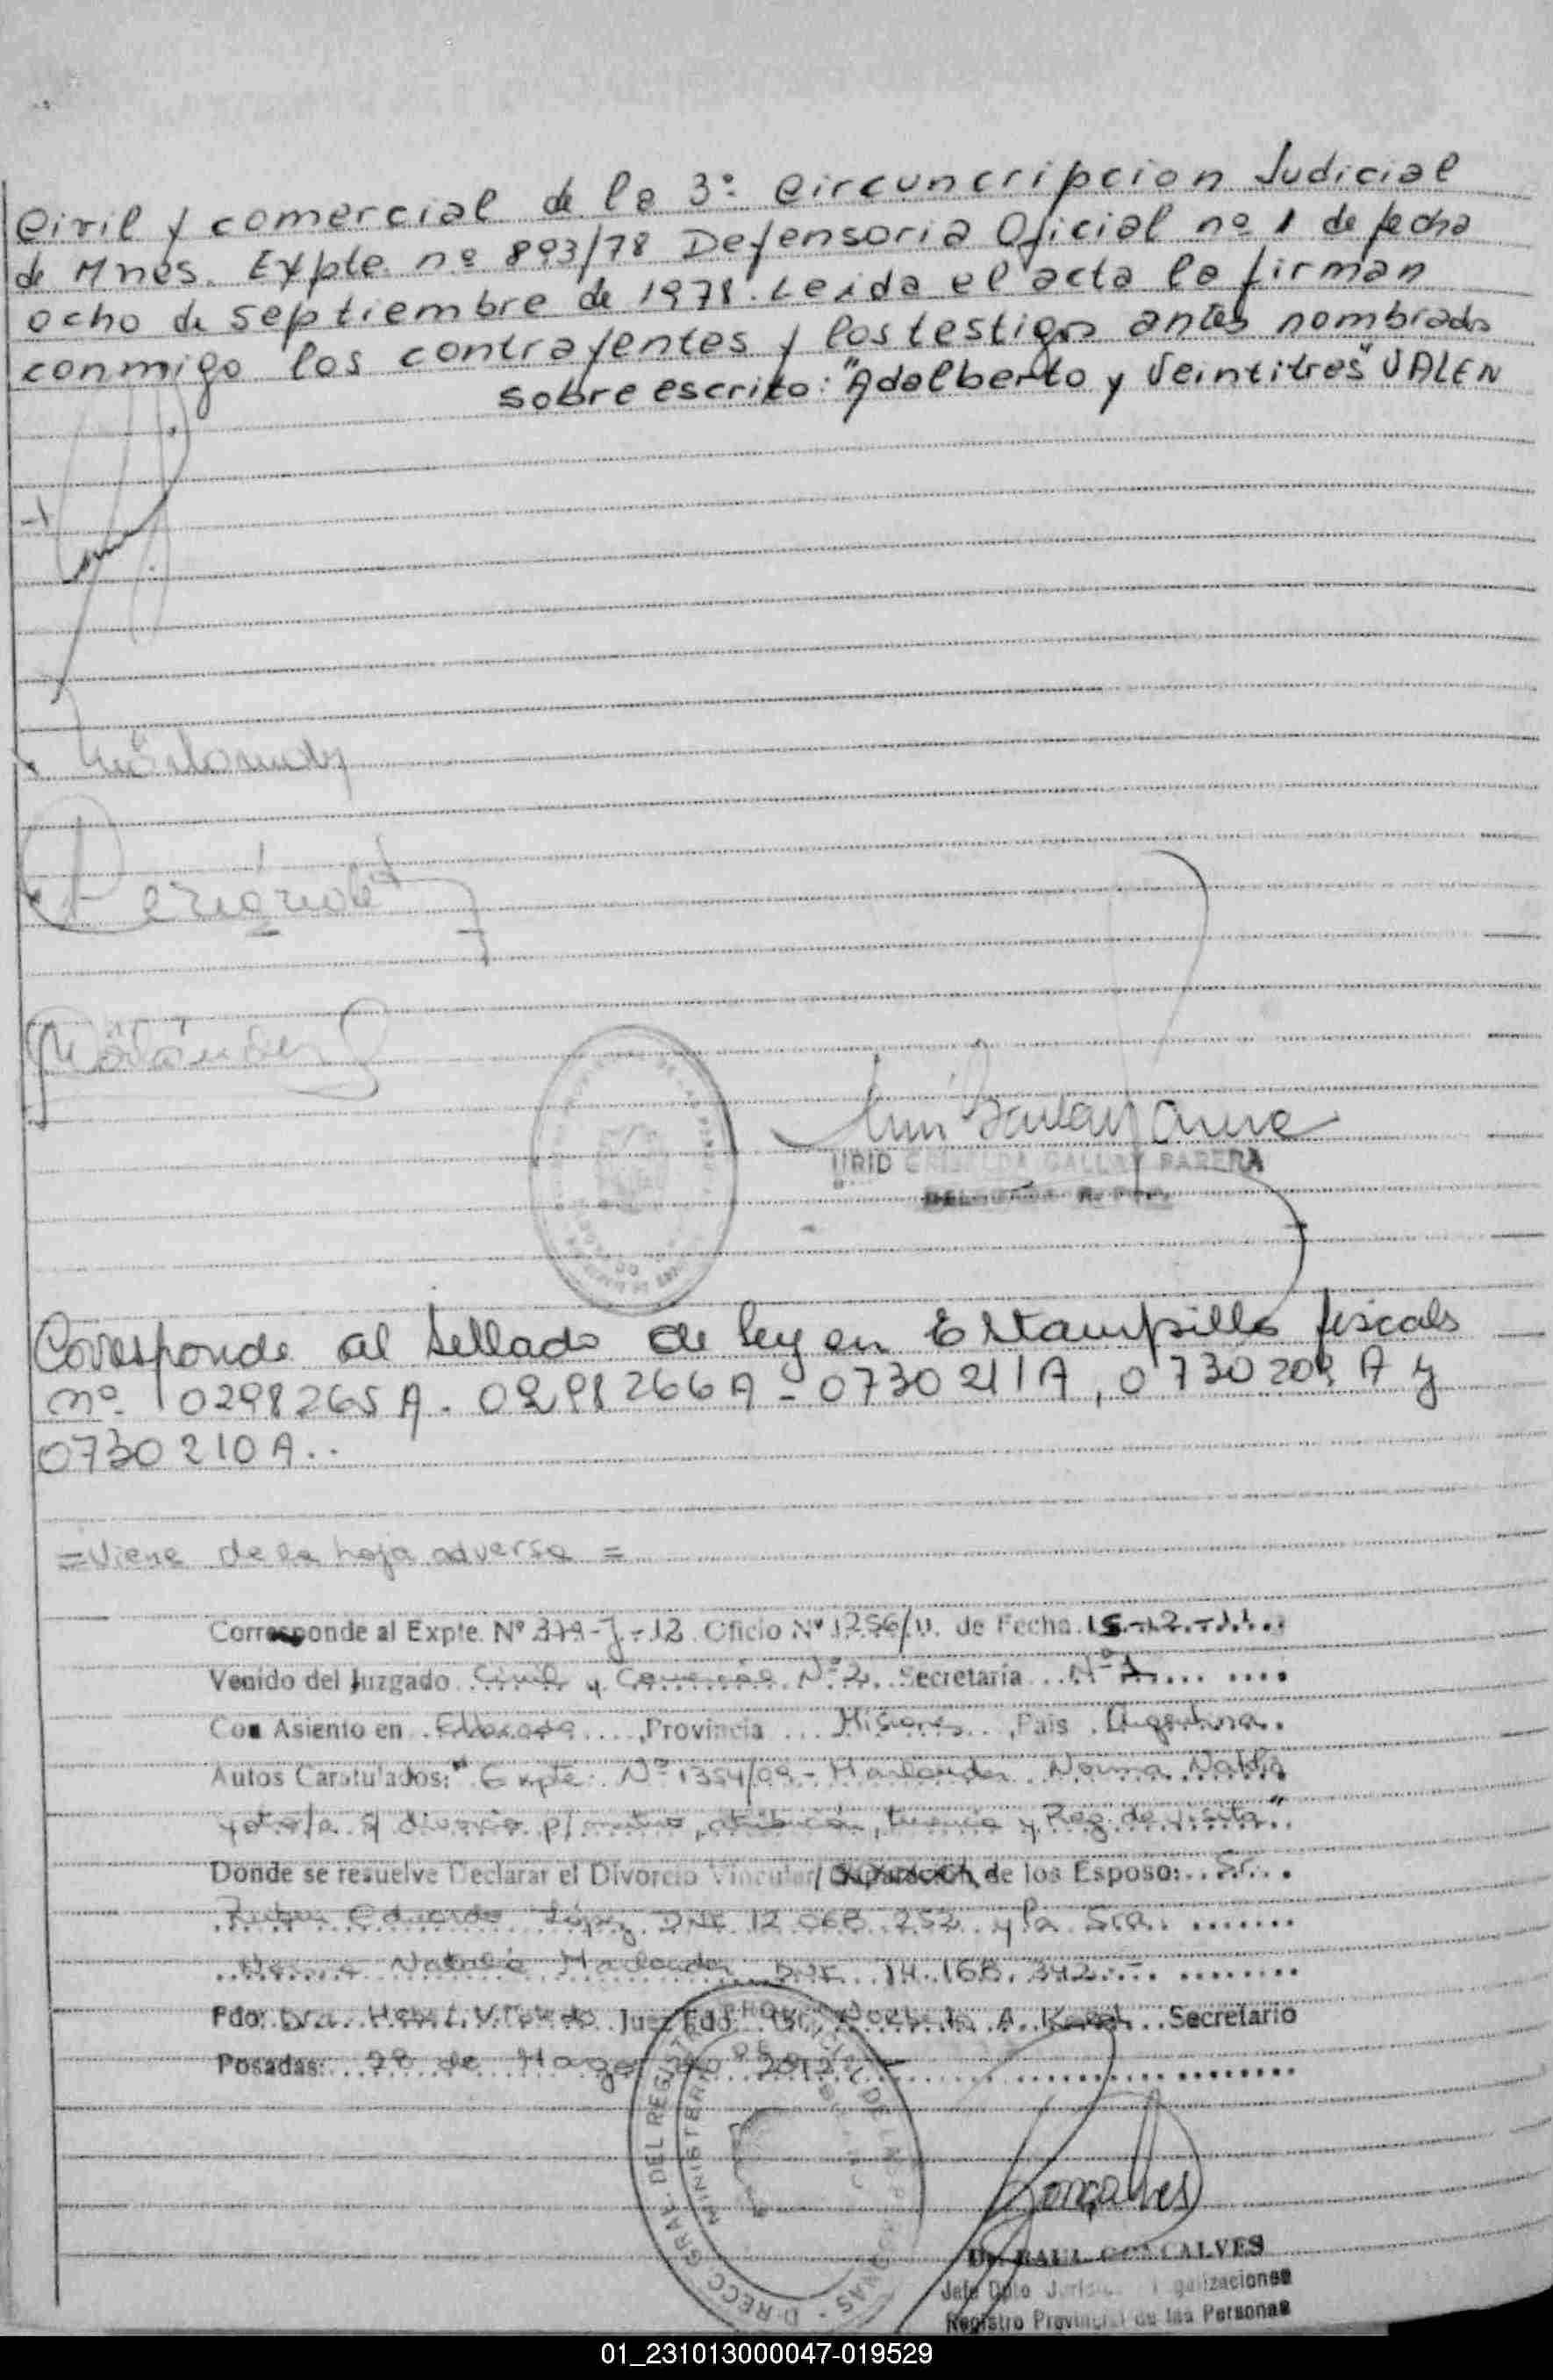 Civil y comercial de la 3º circuncripcion Judicial
de Mnes. Expte. nº 893/78 Defensoria Oficial nº 1 de fecha
ocho de septiembre de 1978. Leida el acta la firman
conmigo los contrayentes y los testigos antes nombrados
sobre escrito: "Adalberto y Veintitres" VALEN
GRISELDA GALLAY PARERA
Corresponde al Sellado de ley en Estampilla fiscals
nº 0298265A. 0298266A - 0730211A, 0730209A y
0730210A..
=Viene de la hoja adversa =
Corresponde al Expte. Nº 379-J-12 Oficio Nº 1256/11. de Fecha 15-12-11
Venido del Juzgado Civil y Comercial Nº 2. Secretaría Nº 1
Con Asiento en Eldorado, Provincia Misiones, País Argentina.
Autos Caratulados: "Expte. Nº 1354/09 - Norma Natalia
y otro/a s/ divorcio p/ mutuo, atribución, tenencia y Reg. de visita"
Donde se resuelve Declarar el Divorcio Vincular/ de los Esposo: Sr.
Ruben Eduardo López DNI 12.068.252 y la Sra.
Norma Natalia DNI 14.168.342
Fdo: Dra. Juez Fdo: Dr. Norberto A. Secretario
Posadas: 28 de Mayo 2012
Gonçalves
Dr. RAUL GONCALVES
Jefe Dpto Legalizaciones
Registro Provincial de las Personas
DIRECC. GRAL. DEL REGISTRO PROVINCIAL DE LAS PERSONAS
01_231013000047-019529